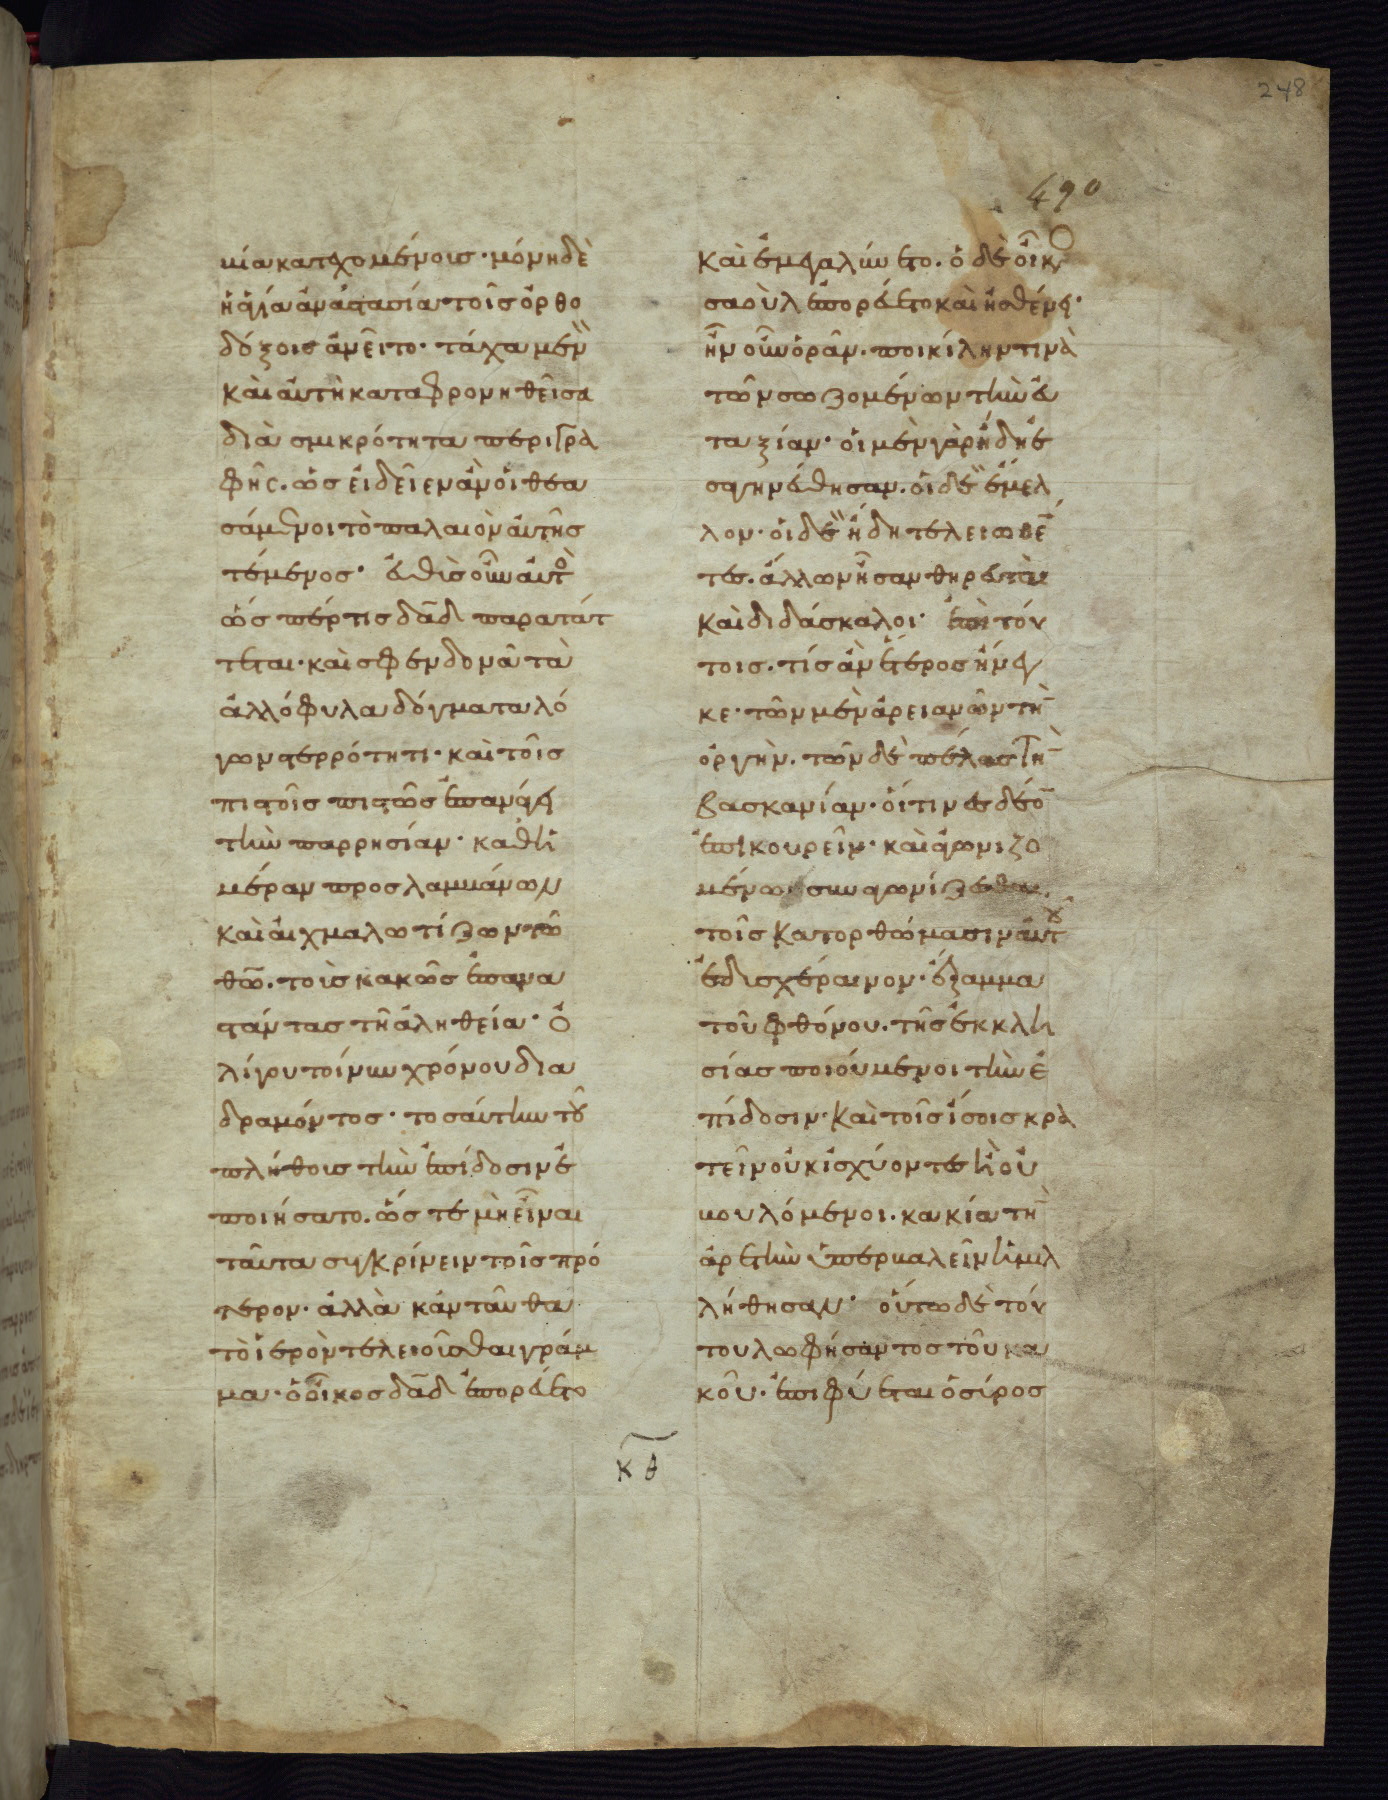 248
490
βία κατεχομένοις· μόνη δὲ
ἡ ἁγία ἀναστασία τοῖς ὀρθο
δόξοις ἀνεῖτο· τάχα μὲν
καὶ αὐτὴ καταφρονηθεῖσα
διὰ σμικρότητα περιγρα
φῆς. ὡς εἰδεῖεν ἂν οἱ θεα
σάμενοι τὸ παλαιὸν αὐτῆς
τέμενος· εὐθὺς οὖν αὐτὸ
ὥσπέρ τις δᾱδ παρατάτ
τεται· καὶ σφενδονᾶ τὰ
ἀλλόφυλα δόγματα λό
γων στερρότητι· καὶ τοῖς
πιστοῖς πιστῶς ἐπανάγει
τὴν παρρησίαν· καθη
μέραν προσλαμβάνων
καὶ αἰχμαλωτίζων τῶ
θῶ. τοὺς κακῶς ἐπανα
στάντας τῆ ἀληθεία· ὀ
λίγου τοίνυν χρόνου δια
δραμόντος· τοσαύτην τοῦ
πλήθους τὴν ἐπίδοσιν ἐ
ποιήσατο. ὥς τε μὴ εἶναι
ταῦτα συγκρίνειν τοῖς πρό
τερον· ἀλλὰ κἀνταῦθα
τὸ ἱερὸν τελειοῦσθαι γράμ
μα· ὁ οἶκος δᾱδ ἐπορεύετο
καὶ ἐμεγαλύνετο. ὁ δὲ οἶκος
σαοὺλ ἐπορεύετο καὶ ἠσθένει·
ἦν οὖν ὁρᾶν. ποικίλην τινὰ
τῶν σωζομένων τὴν εὐ
ταξίαν· οἱ μὲν γὰρ ἤδη ἐ
σαγηνεύθησαν. οἱ δὲ ἔμελ
λον· οἱ δὲ ἤδη τελειωθέν
τες. ἄλλων ἦσαν θηρευταὶ
καὶ διδάσκαλοι· ἐπὶ τού
τοις. τίς ἂν ἑτέρος ἤνεγ
κε· τῶν μὲν ἀρειανῶν τὴν
ὀργὴν. τῶν δὲ πέλας τὴν
βασκανίαν· οἵτινες δέον
ἐπικουρεῖν· καὶ ἀγωνιζο
μένω συναγωνίζεσθαι.
τοῖς κατορθώμασιν αὐτοῦ
ἐδυσχέραινον· ἔγκλημα
τοῦ φθόνου. τῆς ἐκκλη
σίας ποιούμενοι τὴν ἐ
πίδοσιν· καὶ τοῖς ἴσοις κρα
τεῖν οὐκ ἰσχύοντες ἢ οὐ
βουλόμενοι. κακία τὴν
ἀρετὴν ὑπερβαλεῖν ἡμιλ
λήθησαν· οὕτω δὲ τού
του λωφήσαντος τοῦ κα
κοῦ. ἐπιφύεται ὁ σύρος
κθ